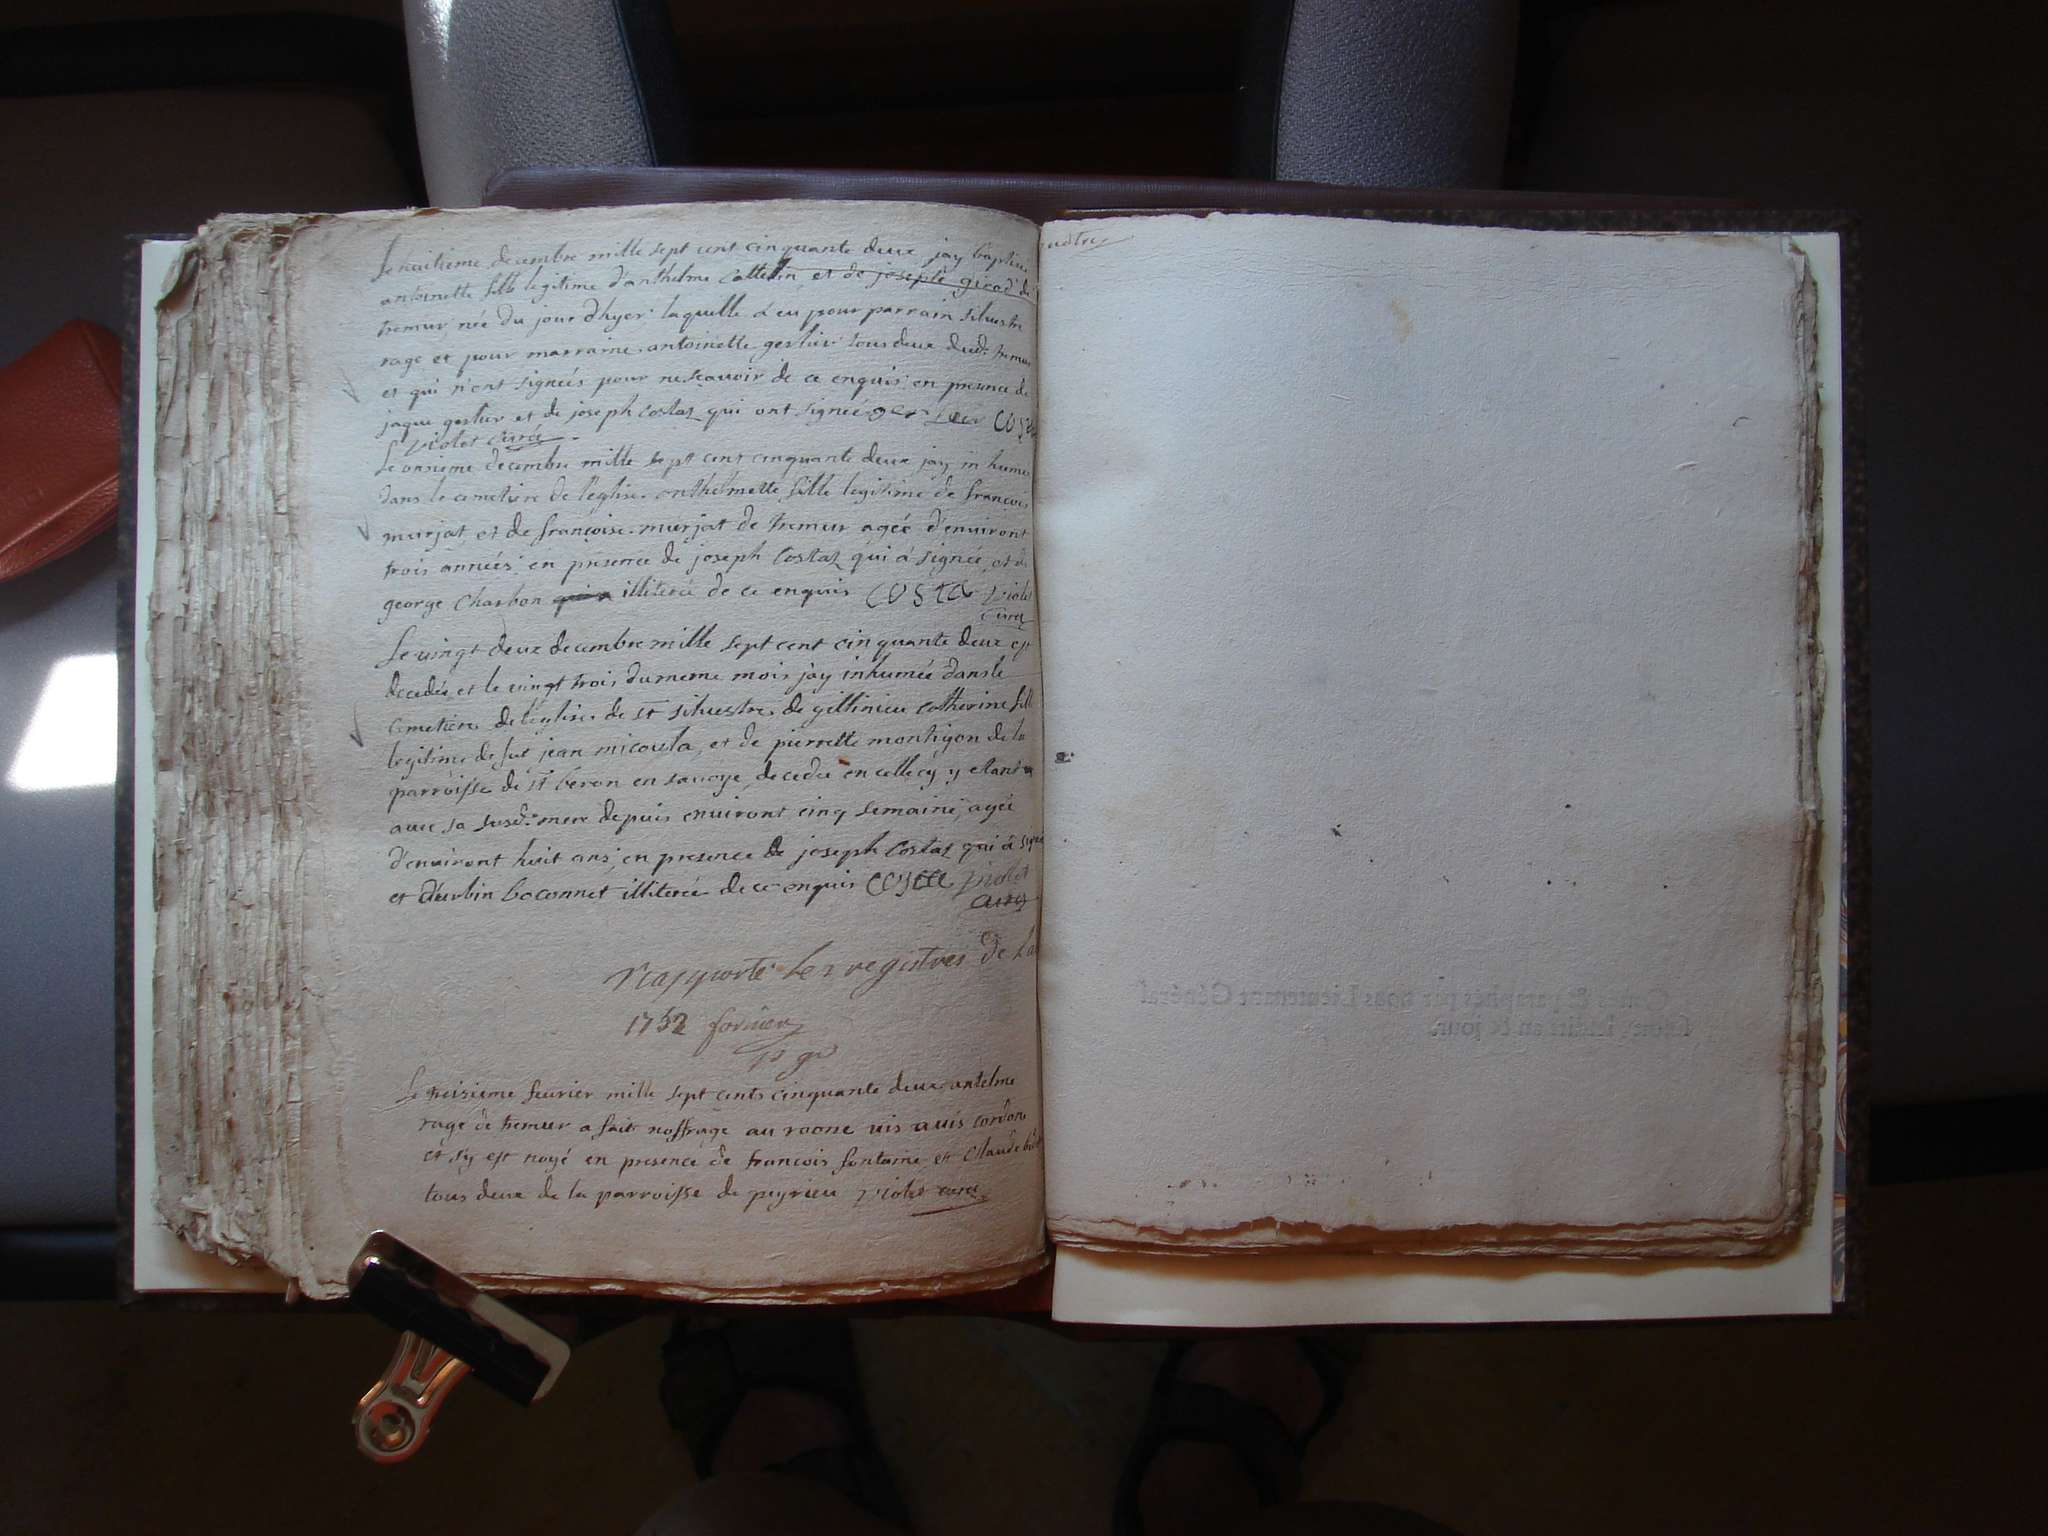 Le huitieme decembre mille sept cent cinquante deux jay baptisee
antoinette fille legitime d'anthelme Cattelin, et de joseple girod de
tremur, née du jour d'hyer laquelle a eu pour parrain silvestre
rage et pour marraine antoinette gerlier tous deux dud. tremur
et qui n'ont signés pour ne scavoir de ce enquis en presence de
jaque gerlier et de joseph costaz qui ont signée gerlier COSTA
Violet curé
Le onzieme decembre mille sept cent cinquante deux jay inhumé
dans le cemetiere de l'eglise anthelmette fille legitime de francois
murjat et de françoise murjat de tremur agée d'environt
trois années en presence de joseph Costaz qui a signée, et de
george Charbon illiteré de ce enquis COSTA Violet
curé
Le vingt deux decembre mille sept cent cinquante deux est
decedée et le vingt trois du meme mois jay inhumée dans le
cemetiere de l'eglise de st silvestre de gillinieu catherine fille
legitime de fut jean micoula, et de pierrette montigon de la
parroisse de st beron en savoye, decedée en celle cy y etant
avec sa susd. mere depuis environt cinq semaine, agée
d'environt huit ans, en presence de joseph Costaz qui a signé
et d'urbin boconnet illiterée de ce enquis COSTA Violet
curé
rapporté les registres de la
1752 fornier
p gr
Le troisieme fevrier mille sept cents cinquante deux antelme
rage de tremur a fait noffrage au roone vis a vis cordon
et sy est noyé en presence de francois fontaine et Claude
tous deux de la parroisse de peyrieu Violet curé